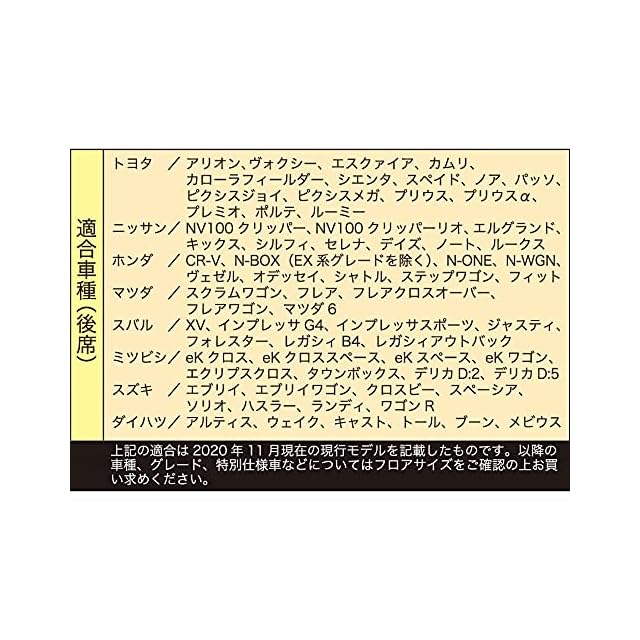 適合車種（後席）
トヨタ ／ アリオン、ヴォクシー、エスクァイア、カムリ、
カローラフィールダー、シエンタ、スペイド、ノア、パッソ、
ピクシスジョイ、ピクシスメガ、プリウス、プリウスα、
プレミオ、ポルテ、ルーミー
ニッサン／ NV100クリッパー、NV100クリッパーリオ、エルグランド、
キックス、シルフィ、セレナ、デイズ、ノート、ルークス
ホンダ ／ CR-V、N-BOX（EX系グレードを除く）、N-ONE、N-WGN、
ヴェゼル、オデッセイ、シャトル、ステップワゴン、フィット
マツダ ／ スクラムワゴン、フレア、フレアクロスオーバー、
フレアワゴン、マツダ6
スバル ／ XV、インプレッサG4、インプレッサスポーツ、ジャスティ、
フォレスター、レガシィB4、レガシィアウトバック
ミツビシ／ eKクロス、eKクロススペース、eKスペース、eKワゴン、
エクリプスクロス、タウンボックス、デリカD:2、デリカD:5
スズキ ／ エブリイ、エブリイワゴン、クロスビー、スペーシア、
ソリオ、ハスラー、ランディ、ワゴンR
ダイハツ／ アルティス、ウェイク、キャスト、トール、ブーン、メビウス
上記の適合は2020年11月現在の現行モデルを記載したものです。以降の
車種、グレード、特別仕様車などについてはフロアサイズをご確認の上お買
い求めください。